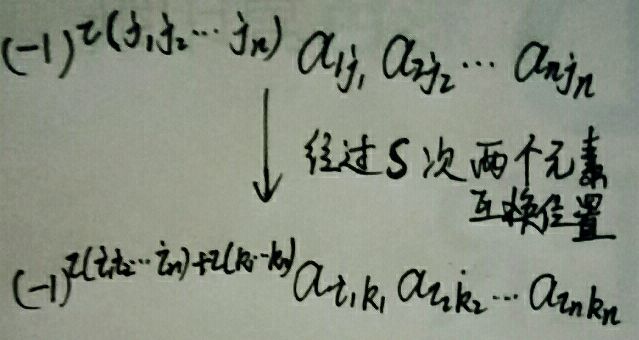 (-1)^{τ(j₁j₂⋯jₙ)} a_{1j₁} a_{2j₂}⋯ a_{njₙ}
经过S次两个元素
互换位置
(-1)^{τ(i₁i₂⋯iₙ)+τ(k₁⋯kₙ)} a_{i₁k₁} a_{i₂k₂}⋯ a_{iₙkₙ}